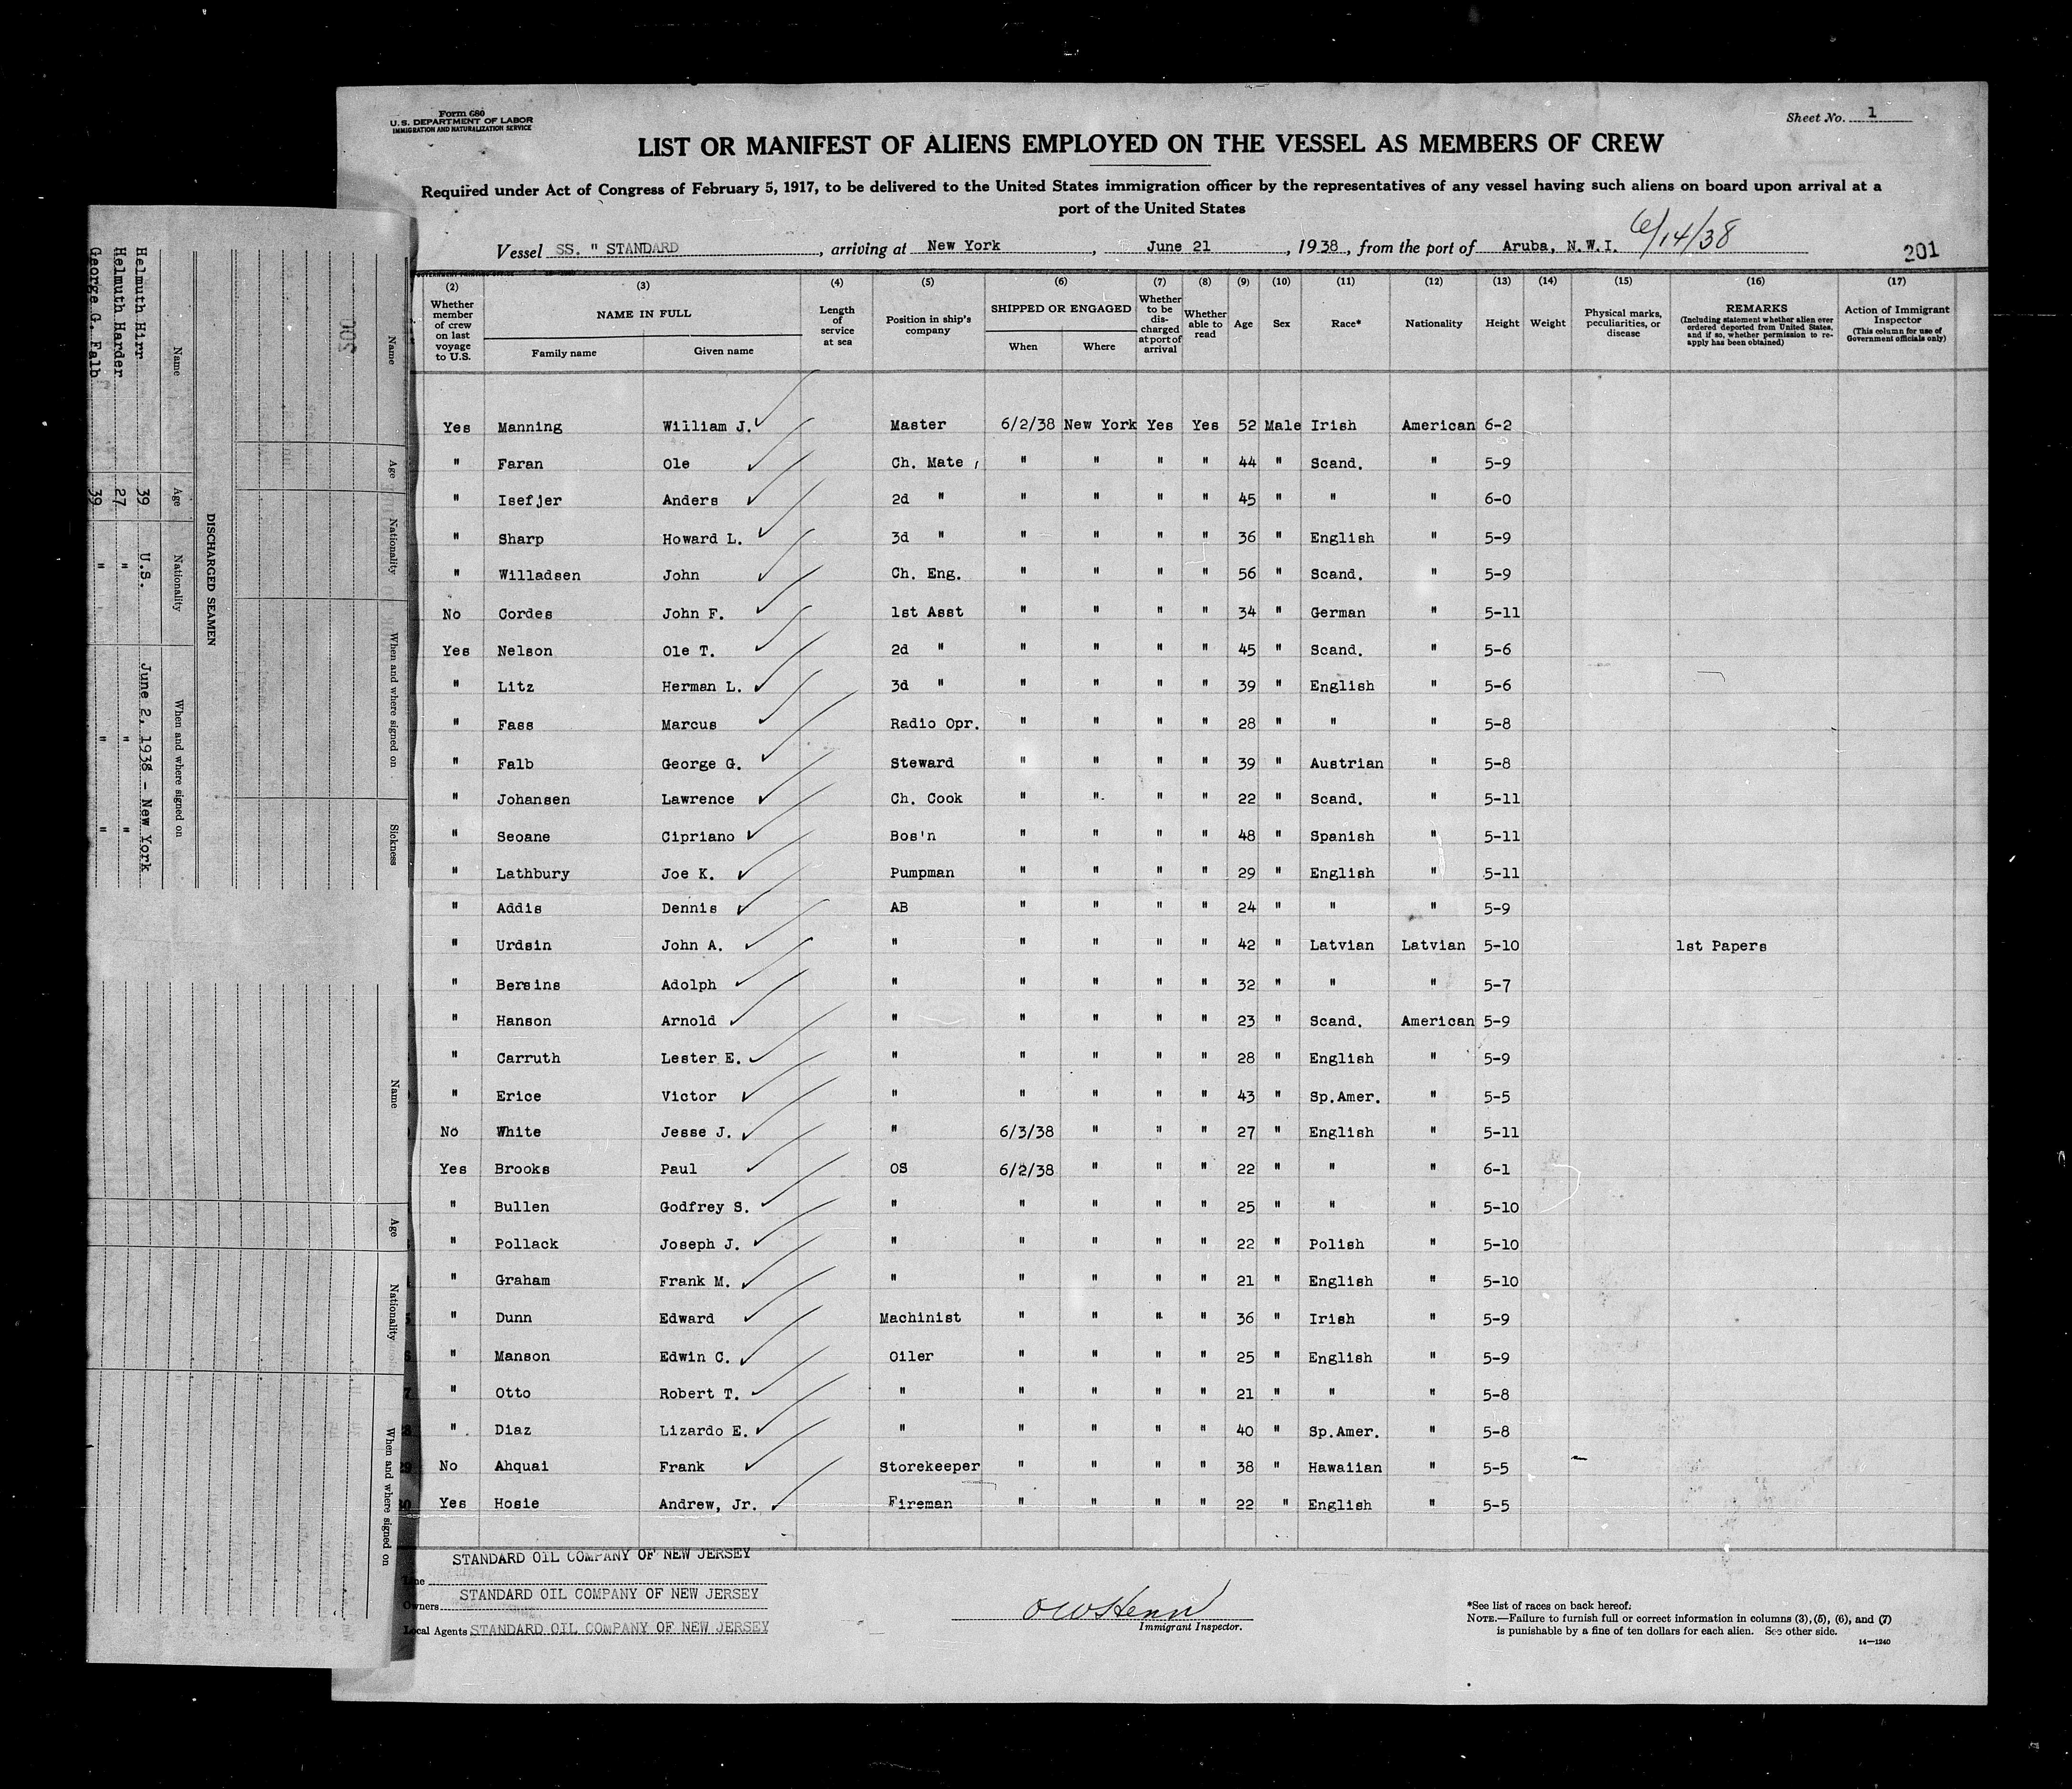 Form 680
U.S. DEPARTMENT OF LABOR
IMMIGRATION AND NATURALIZATION SERVICE
Sheet No. 1
LIST OR MANIFEST OF ALIENS EMPLOYED ON THE VESSEL AS MEMBERS OF CREW
Required under Act of Congress of February 5, 1917, to be delivered to the United States immigration officer by the representatives of any vessel having such aliens on board upon arrival at a
port of the United States
6/14/38
Vessel SS. " STANDARD , arriving at New York , June 21 , 1938 , from the port of Aruba, N.W.I.
201
(2) (3) (4) (5) (6) (7) (8) (9) (10) (11) (12) (13) (14) (15) (16) (17)
Whether member of crew on last voyage to U.S. NAME IN FULL Family name Given name Length of service at sea Position in ship's company SHIPPED OR ENGAGED When Where Whether to be discharged at port of arrival Whether able to read Age Sex Race* Nationality Height Weight Physical marks, peculiarities, or disease REMARKS (Including statement whether alien ever ordered deported from United States, and if so, whether permission to re-apply has been obtained) Action of Immigrant Inspector (This column for use of Government officials only)
Yes Manning William J. Master 6/2/38 New York Yes Yes 52 Male Irish American 6-2
" Faran Ole Ch. Mate " " " " 44 " Scand. " 5-9
" Isefjer Anders 2d " " " " " 45 " " " 6-0
" Sharp Howard L. 3d " " " " " 36 " English " 5-9
" Willadsen John Ch. Eng. " " " " 56 " Scand. " 5-9
No Cordes John F. 1st Asst " " " " 34 " German " 5-11
Yes Nelson Ole T. 2d " " " " " 45 " Scand. " 5-6
" Litz Herman L. 3d " " " " " 39 " English " 5-6
" Fass Marcus Radio Opr. " " " " 28 " " " 5-8
" Falb George G. Steward " " " " 39 " Austrian " 5-8
" Johansen Lawrence Ch. Cook " " " " 22 " Scand. " 5-11
" Seoane Cipriano Bos'n " " " " 48 " Spanish " 5-11
" Lathbury Joe K. Pumpman " " " " 29 " English " 5-11
" Addis Dennis AB " " " " 24 " " " 5-9
" Urdsin John A. " " " " " 42 " Latvian Latvian 5-10 1st Papers
" Bersins Adolph " " " " " 32 " " " 5-7
" Hanson Arnold " " " " " 23 " Scand. American 5-9
" Carruth Lester E. " " " " " 28 " English " 5-9
" Erice Victor " " " " " 43 " Sp.Amer. " 5-5
No White Jesse J. " 6/3/38 " " " 27 " English " 5-11
Yes Brooks Paul OS 6/2/38 " " " 22 " " " 6-1
" Bullen Godfrey S. " " " " " 25 " " " 5-10
" Pollack Joseph J. " " " " " 22 " Polish " 5-10
" Graham Frank M. " " " " " 21 " English " 5-10
" Dunn Edward Machinist " " " " 36 " Irish " 5-9
" Manson Edwin C. Oiler " " " " 25 " English " 5-9
" Otto Robert T. " " " " " 21 " " " 5-8
" Diaz Lizardo E. " " " " " 40 " Sp.Amer. " 5-8
No Ahquai Frank Storekeeper " " " " 38 " Hawaiian " 5-5
Yes Hosie Andrew, Jr. Fireman " " " " 22 " English " 5-5
STANDARD OIL COMPANY OF NEW JERSEY
Owners STANDARD OIL COMPANY OF NEW JERSEY
Local Agents STANDARD OIL COMPANY OF NEW JERSEY
Immigrant Inspector.
*See list of races on back hereof.
NOTE.—Failure to furnish full or correct information in columns (3), (5), (6), and (7)
is punishable by a fine of ten dollars for each alien. See other side.
14—1240
300
Name Age Nationality When and where signed on Sickness
DISCHARGED SEAMEN
Name Age Nationality When and where signed on
Helmuth Hirr 39 U.S. June 2, 1938 - New York
Helmuth Harder 27 " " "
George G. Falb 39 " " "
Name Age Nationality When and where signed on